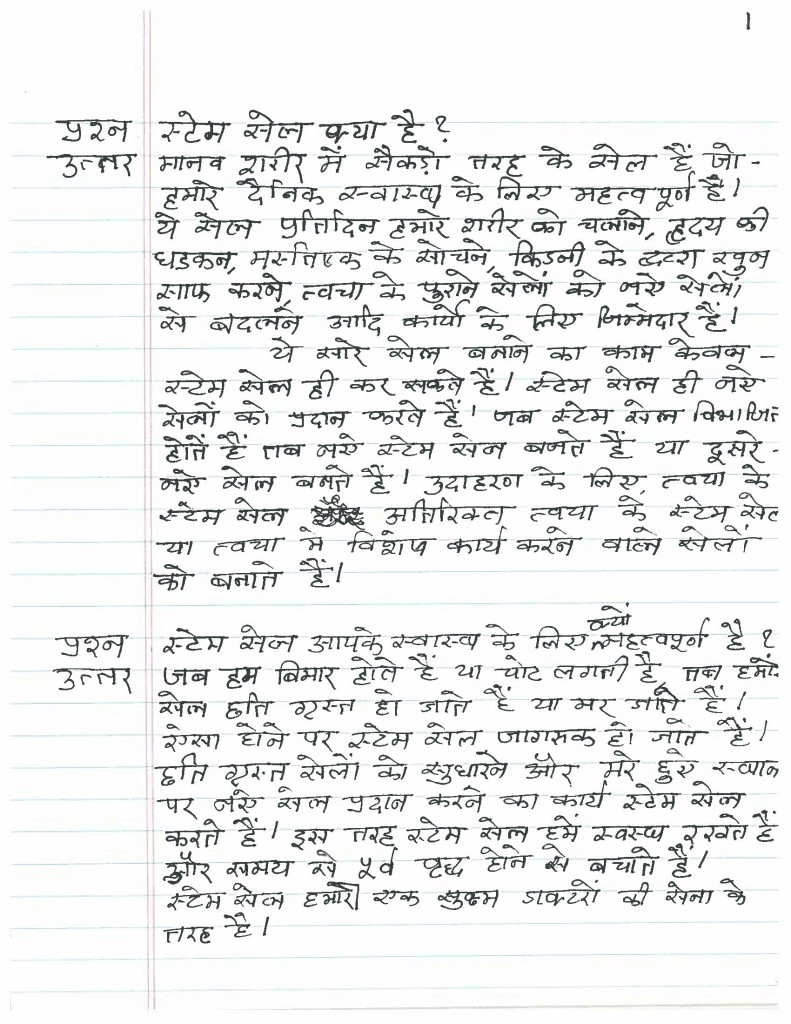 1
प्रश्न स्टेम सेल क्या है?
उत्तर मानव शरीर में सैकड़ो तरह के सेल हैं जो -
हमारे दैनिक स्वास्थ्य के लिए महत्वपूर्ण है।
ये सेल प्रतिदिन हमारे शरीर को चलाने, हृदय की
धडकन, मस्तिष्क के सोचने, किडनी के द्वारा खुन
साफ करने, त्वचा के पुराने सेलों को नए सेलों
से बदलने आदि कार्यो के लिए जिम्मेदार हैं।
ये सारे सेल बनाने का काम केवल -
स्टेम सेल ही कर सकते हैं। स्टेम सेल ही नए
सेलों को प्रदान करते हैं। जब स्टेम सेल विभाजित
होतें हैं तब नए स्टेम सेल बनते हैं या दूसरे -
नए सेल बनते हैं। उदाहरण के लिए, त्वचा के
स्टेम सेल अतिरिक्त त्वचा के स्टेम सेल
या त्वचा मे विशेष कार्य करने वाले सेलों
को बनाते हैं।
प्रश्न स्टेम सेल आपके स्वास्थ्य के लिए क्यों महत्वपूर्ण है?
उत्तर जब हम बिमार होते हैं या चोट लगती है, तब हमारे
सेल छति ग्रस्त हो जाते हैं या मर जाते हैं।
ऐसा होने पर स्टेम सेल जागरूक हो जाते हैं।
छति ग्रस्त सेलों को सुधारने और मरे हुए स्थान
पर नए सेल प्रदान करने का कार्य स्टेम सेल
करते हैं। इस तरह स्टेम सेल हमें स्वस्थ रखते हैं
और समय से पूर्व वृद्ध होने से बचाते हैं।
स्टेम सेल हमारे एक सुक्ष्म डाक्टरों की सेना के
तरह है।